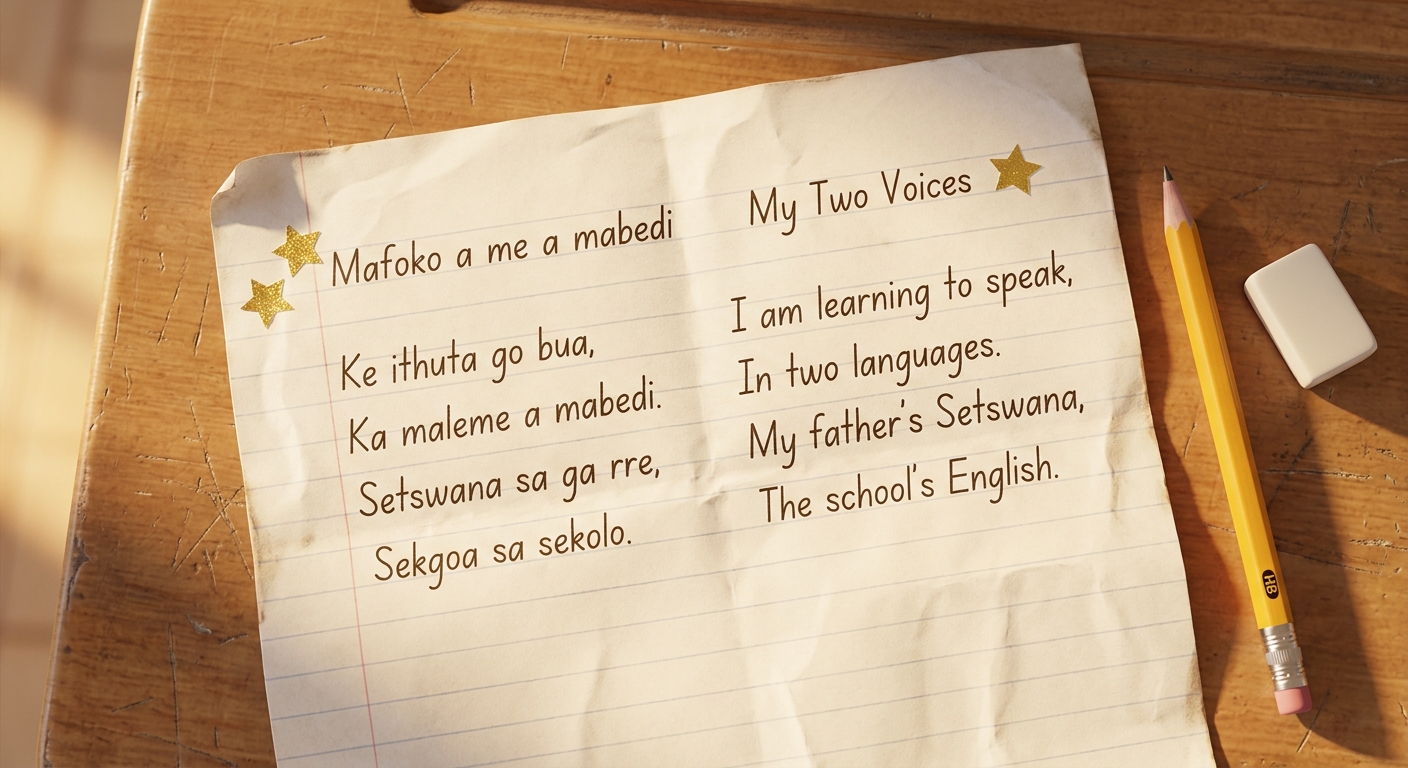 Mafoko a me a mabedi
Ke ithuta go bua,
Ka maleme a mabedi.
Setswana sa ga rre,
Sekgoa sa sekolo.
My Two Voices
I am learning to speak,
In two languages.
My father's Setswana,
The school's English.
HB